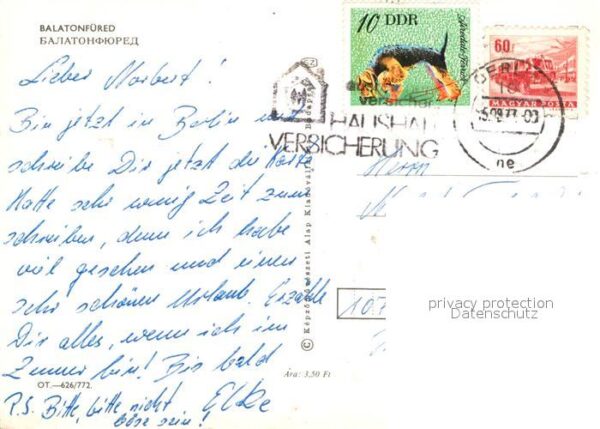 BALATONFÜRED
БАЛАТОНФЮРЕД
Lieber Norbert!
Bin jetzt in Berlin und
schreibe Dir jetzt die Karte
Hatte sehr wenig Zeit zum
schreiben, denn ich habe
viel gesehen und einen
sehr schönen Urlaub. Erzähle
Dir alles, wenn ich im
Zimmer bin! Bis bald
Elke
P.S. Bitte, bitte nicht
böse sein!
OT.—626/772.
Ára: 3,50 Ft
© Képzőművészeti Alap Kiadóvállalata, Budapest
10 DDR
60f
MAGYAR POSTA
HAUSHALT
VERSICHERUNG
BERLIN
77
ne
Herrn
107
privacy protection
Datenschutz